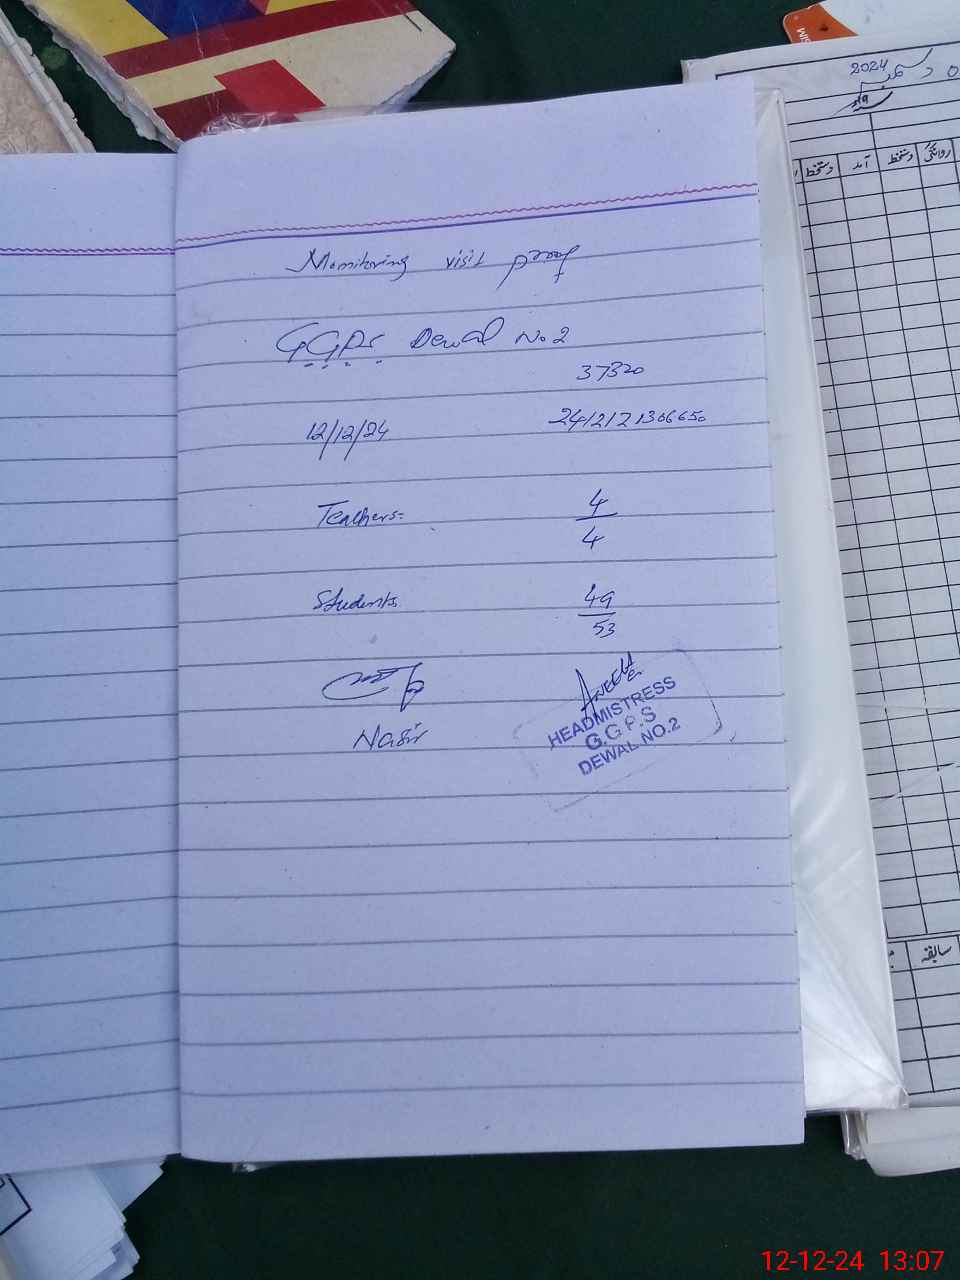 Monitoring visit proof
G.G.P.S. Dewal No 2
37320
12/12/24 2412121306650
Teachers. 4
4
Students 49
53
Nasir
ANEELA
HEADMISTRESS
G.G.P.S
DEWAL NO.2
2024
دستخط آمد دستخط روانگی
سابقہ
12-12-24 13:07